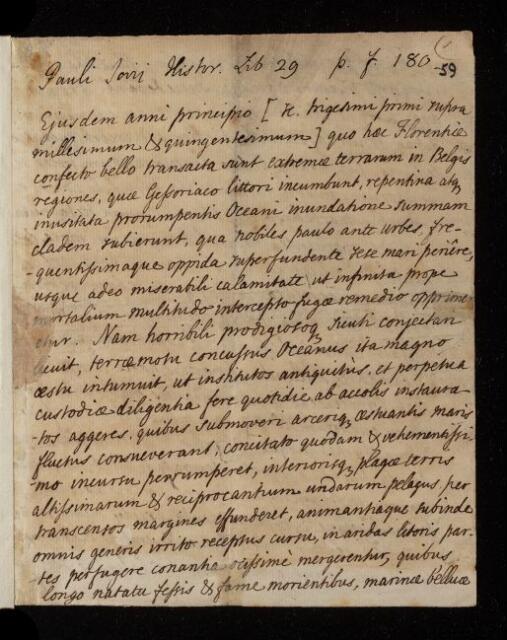 Pauli Jovij Histor. Lib 29 p. f. 180
59
Ejusdem anni principio [ sc. trigesimi primi supra
millesimum & quingentesimum ] quo hæc Florentiæ
confecto bello transacta sunt extremæ terrarum in Belgis
regiones, quæ Gessoriaco littori incumbunt, repentina atq
inusitata prorumpentis Oceani inundatione summam
cladem subierunt, qua nobiles paulo ante urbes, fre-
-quentissimaque oppida superfundente sese mari periêre,
usque adeo miserabili calamitate ut infinita prope
mortalium multitudo intercepto fugæ remedio opprime
etur. Nam horribili prodigiosoq sicuti conjectari
licuit, terræmotu concussus Oceanus ita magno
æstu intumuit, ut institutos antiquitùs, et perpetua
custodiæ diligentia fere quotidie ab accolis instaura-
-tos aggeres, quibus submoveri arceriq æstuantis maris
fluctus consueverant, concitato quodam & vehementissi-
-mo incursu perrumperet, interiorisq plagæ terris
altissimarum & reciprocantium undarum pelagus per
transcensos margines effunderet, animantiaque subinde
omnis generis irrito receptus cursu, in aridas litoris par-
tes perfugere conantia ocissimè mergerentur, quibus
longo natatu fessis & fame morientibus, marinæ belluæ